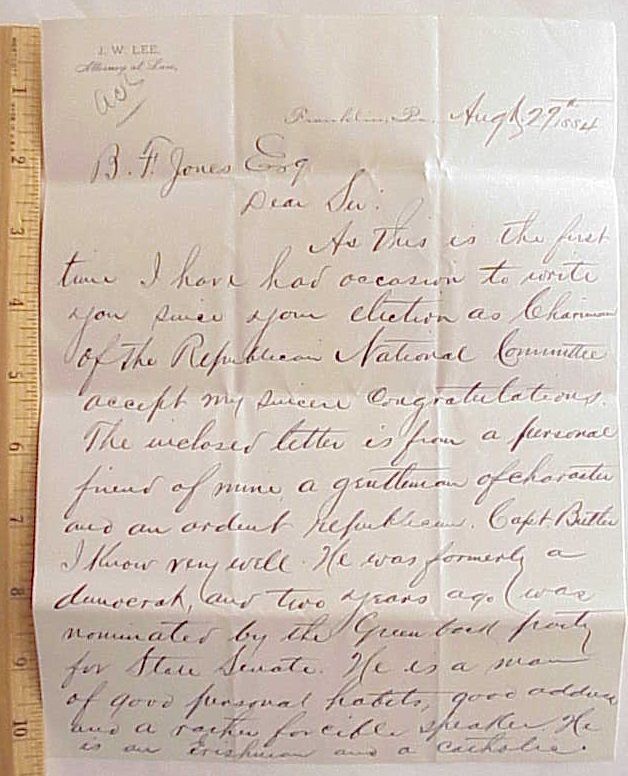 J. W. LEE,
Attorney at Law,
ack
Franklin, Pa. Augt 29th 1884
B. F. Jones Esq
Dear Sir:
As this is the first
time I have had occasion to write
you since your election as Chairman
of the Republican National Committee
accept my sincere congratulations.
The inclosed letter is from a personal
friend of mine, a gentleman of character
and an ardent republican. Capt Butler
I know very well. He was formerly a
democrat, and two years ago was
nominated by the Greenback party
for State Senate. He is a man
of good personal habits, good address
and a rather forcible speaker. He
is an Irishman and a catholic.
1
2
3
4
5
6
7
8
9
10